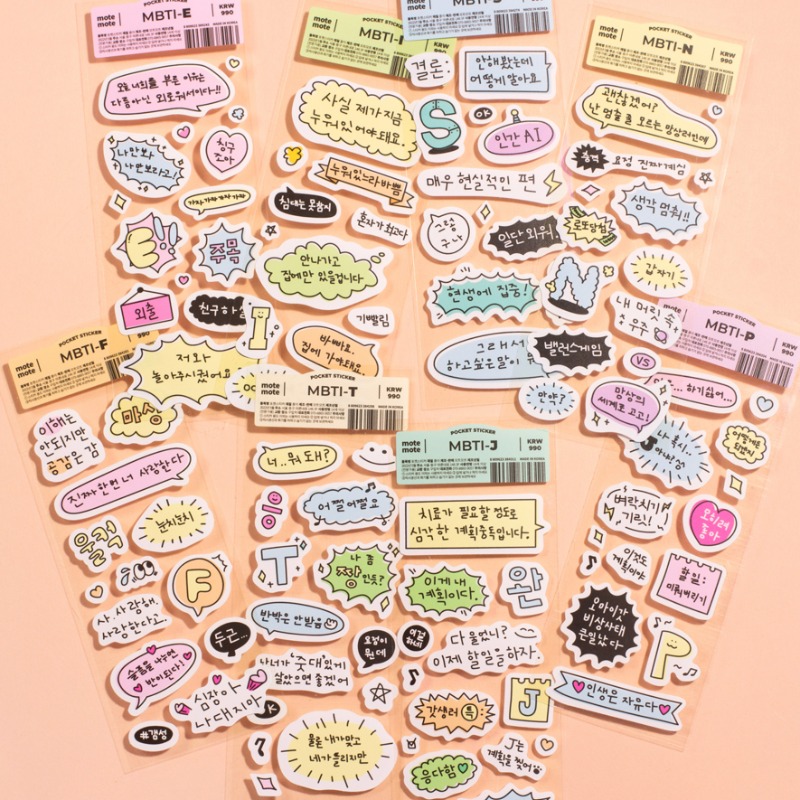 mote
mote
POCKET STICKER
MBTI-E
KRW
990
오늘 너희를 부른 이유는
다름아닌 외로워서이다!!
나만 봐
나만 보라고!
친구
조아
가자 가자 가자 가자
E!!
주목
외출
친구하실
저와
놀아주시겠어요
POCKET STICKER
KRW
990
사실 제가 지금
누워있어야돼요.
누워있느라 바쁨
침대는 못참지
혼자가 최고다
안나가고
집에만 있을겁니다
기빨림
I
바빠요.
집에 가야돼요.
결론.
안해봤는데
어떻게 알아요
S
OK
인간 AI
매우 현실적인 편
그렇
구나
일단 외워.
현생에 집중!
그래서
하고싶은 말이
mote
mote
POCKET STICKER
MBTI-N
KRW
990
괜찮겠어?
난 멈출 줄 모르는 망상러인데
출격
요정 진짜 계심
생각 멈춰!!
로또당첨
N
갑자기
내 머릿 속
우주
밸런스게임
VS
만약?
망상의
세계로 고고!
POCKET STICKER
MBTI-P
KRW
990
하기싫어...
나 혹시..
어떻게든
되겠지
벼락치기
기릿!
오히려
좋아
이것도
계획이야
할일:
미뤄버리기
오마이갓
비상사태
큰일났다
P
인생은 자유다
mote
mote
POCKET STICKER
MBTI-F
990
이해는
안되지만
공감은 감
마상
진짜 한번 너 사랑한다
울컥
눈치눈치
F
사.사랑해.
사랑한다고.
두근...
슬픔을 나누면
반이된다!
심장아
나대지마
#갬성
mote
mote
POCKET STICKER
MBTI-T
KRW
990
너..뭐 돼?
어쩔어쩔요
T
나 좀
짱인듯?
반박은 안받음
요점이
뭔데
나네가 줏대있게
살았으면 좋겠어
K
물론 내가 맞고
네가 틀리지만
mote
mote
POCKET STICKER
MBTI-J
KRW
990
치료가 필요할 정도로
심각한 계획중독입니다.
이게 내
계획이다.
완
이걸
하네
다 울었니?
이제 할일을하자
갓생러
J
J는
계획을 찢어
응 다함